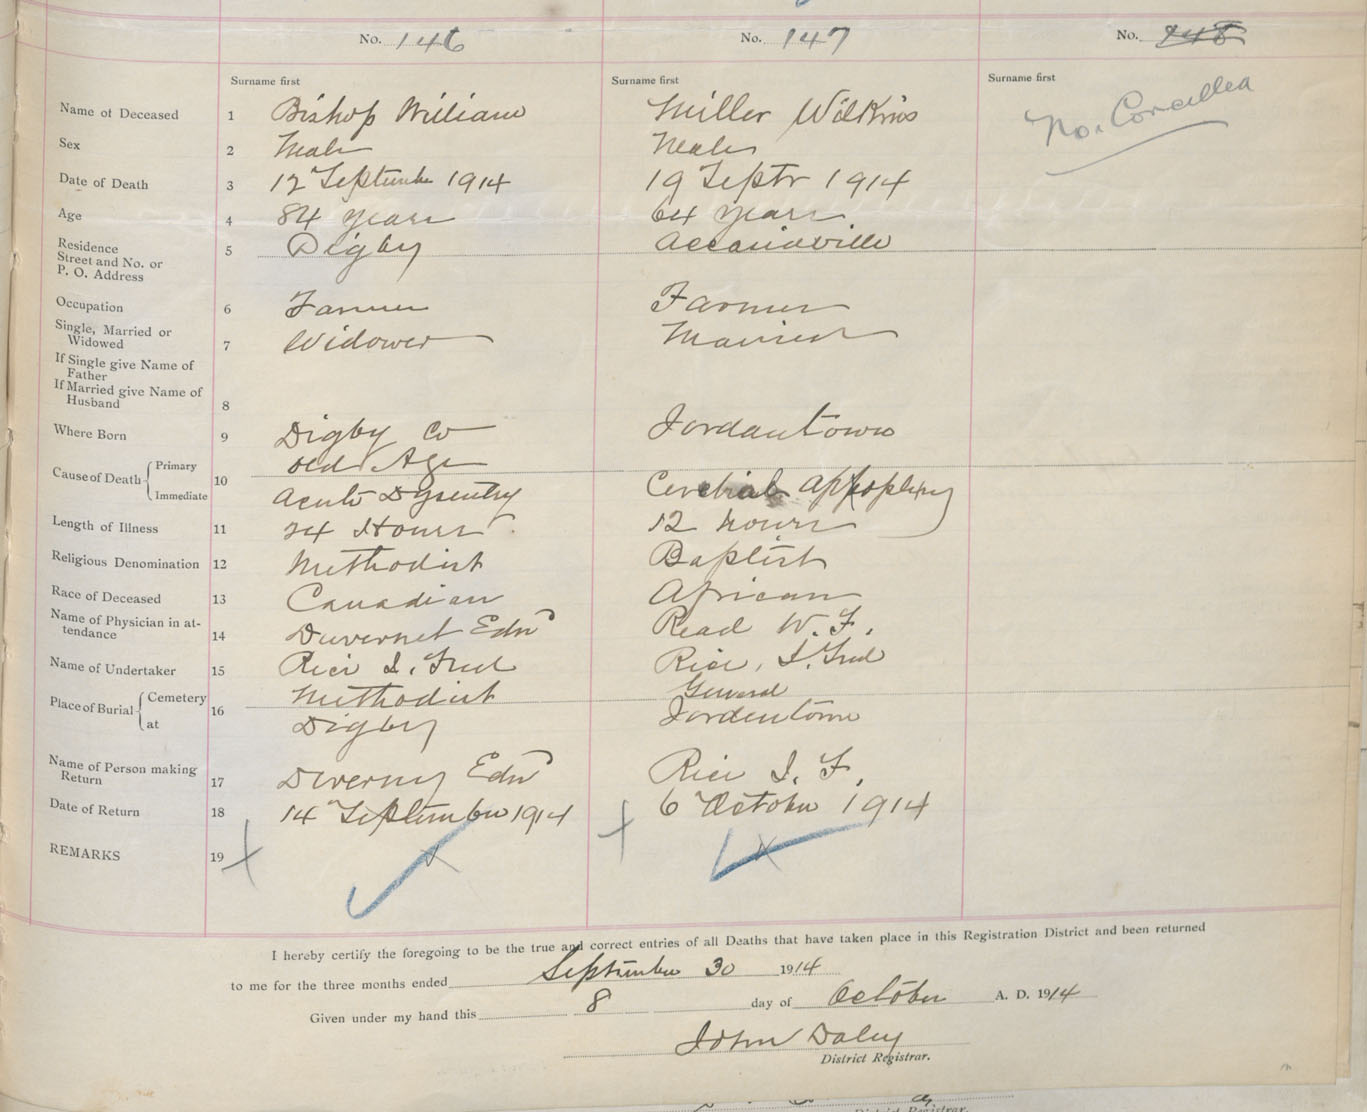 No. 146 No. 147 No. 148
Surname first Surname first Surname first
Name of Deceased 1 Bishop William Miller Wilkins No. Cancelled
Sex 2 Male Male
Date of Death 3 12 September 1914 19 Septr 1914
Age 4 84 years 64 years
Residence
Street and No. or 5 Digby Acaciaville
P. O. Address
Occupation 6 Farmer Farmer
Single, Married or
Widowed 7 Widower Married
If Single give Name of
Father
If Married give Name of
Husband 8
Where Born 9 Digby Co Jordantown
Cause of Death Primary 10 old Age
Immediate Acute Dysentry Cerebral Appoplexy
Length of Illness 11 24 Hours 12 hours
Religious Denomination 12 Methodist Baptist
Race of Deceased 13 Canadian African
Name of Physician in at-
tendance 14 Duvernet Edn Read W. F.
Name of Undertaker 15 Rice I. Fred Rice, I. Fred
Place of Burial Cemetery 16 Methodist General
at Digby Jordentown
Name of Person making
Return 17 Edn Rice I. F.
Date of Return 18 14 September 1914 6 October 1914
REMARKS 19
I hereby certify the foregoing to be the true and correct entries of all Deaths that have taken place in this Registration District and been returned
to me for the three months ended September 30 1914
Given under my hand this 8 day of October A. D. 1914
John Daley
District Registrar.
District Registrar.